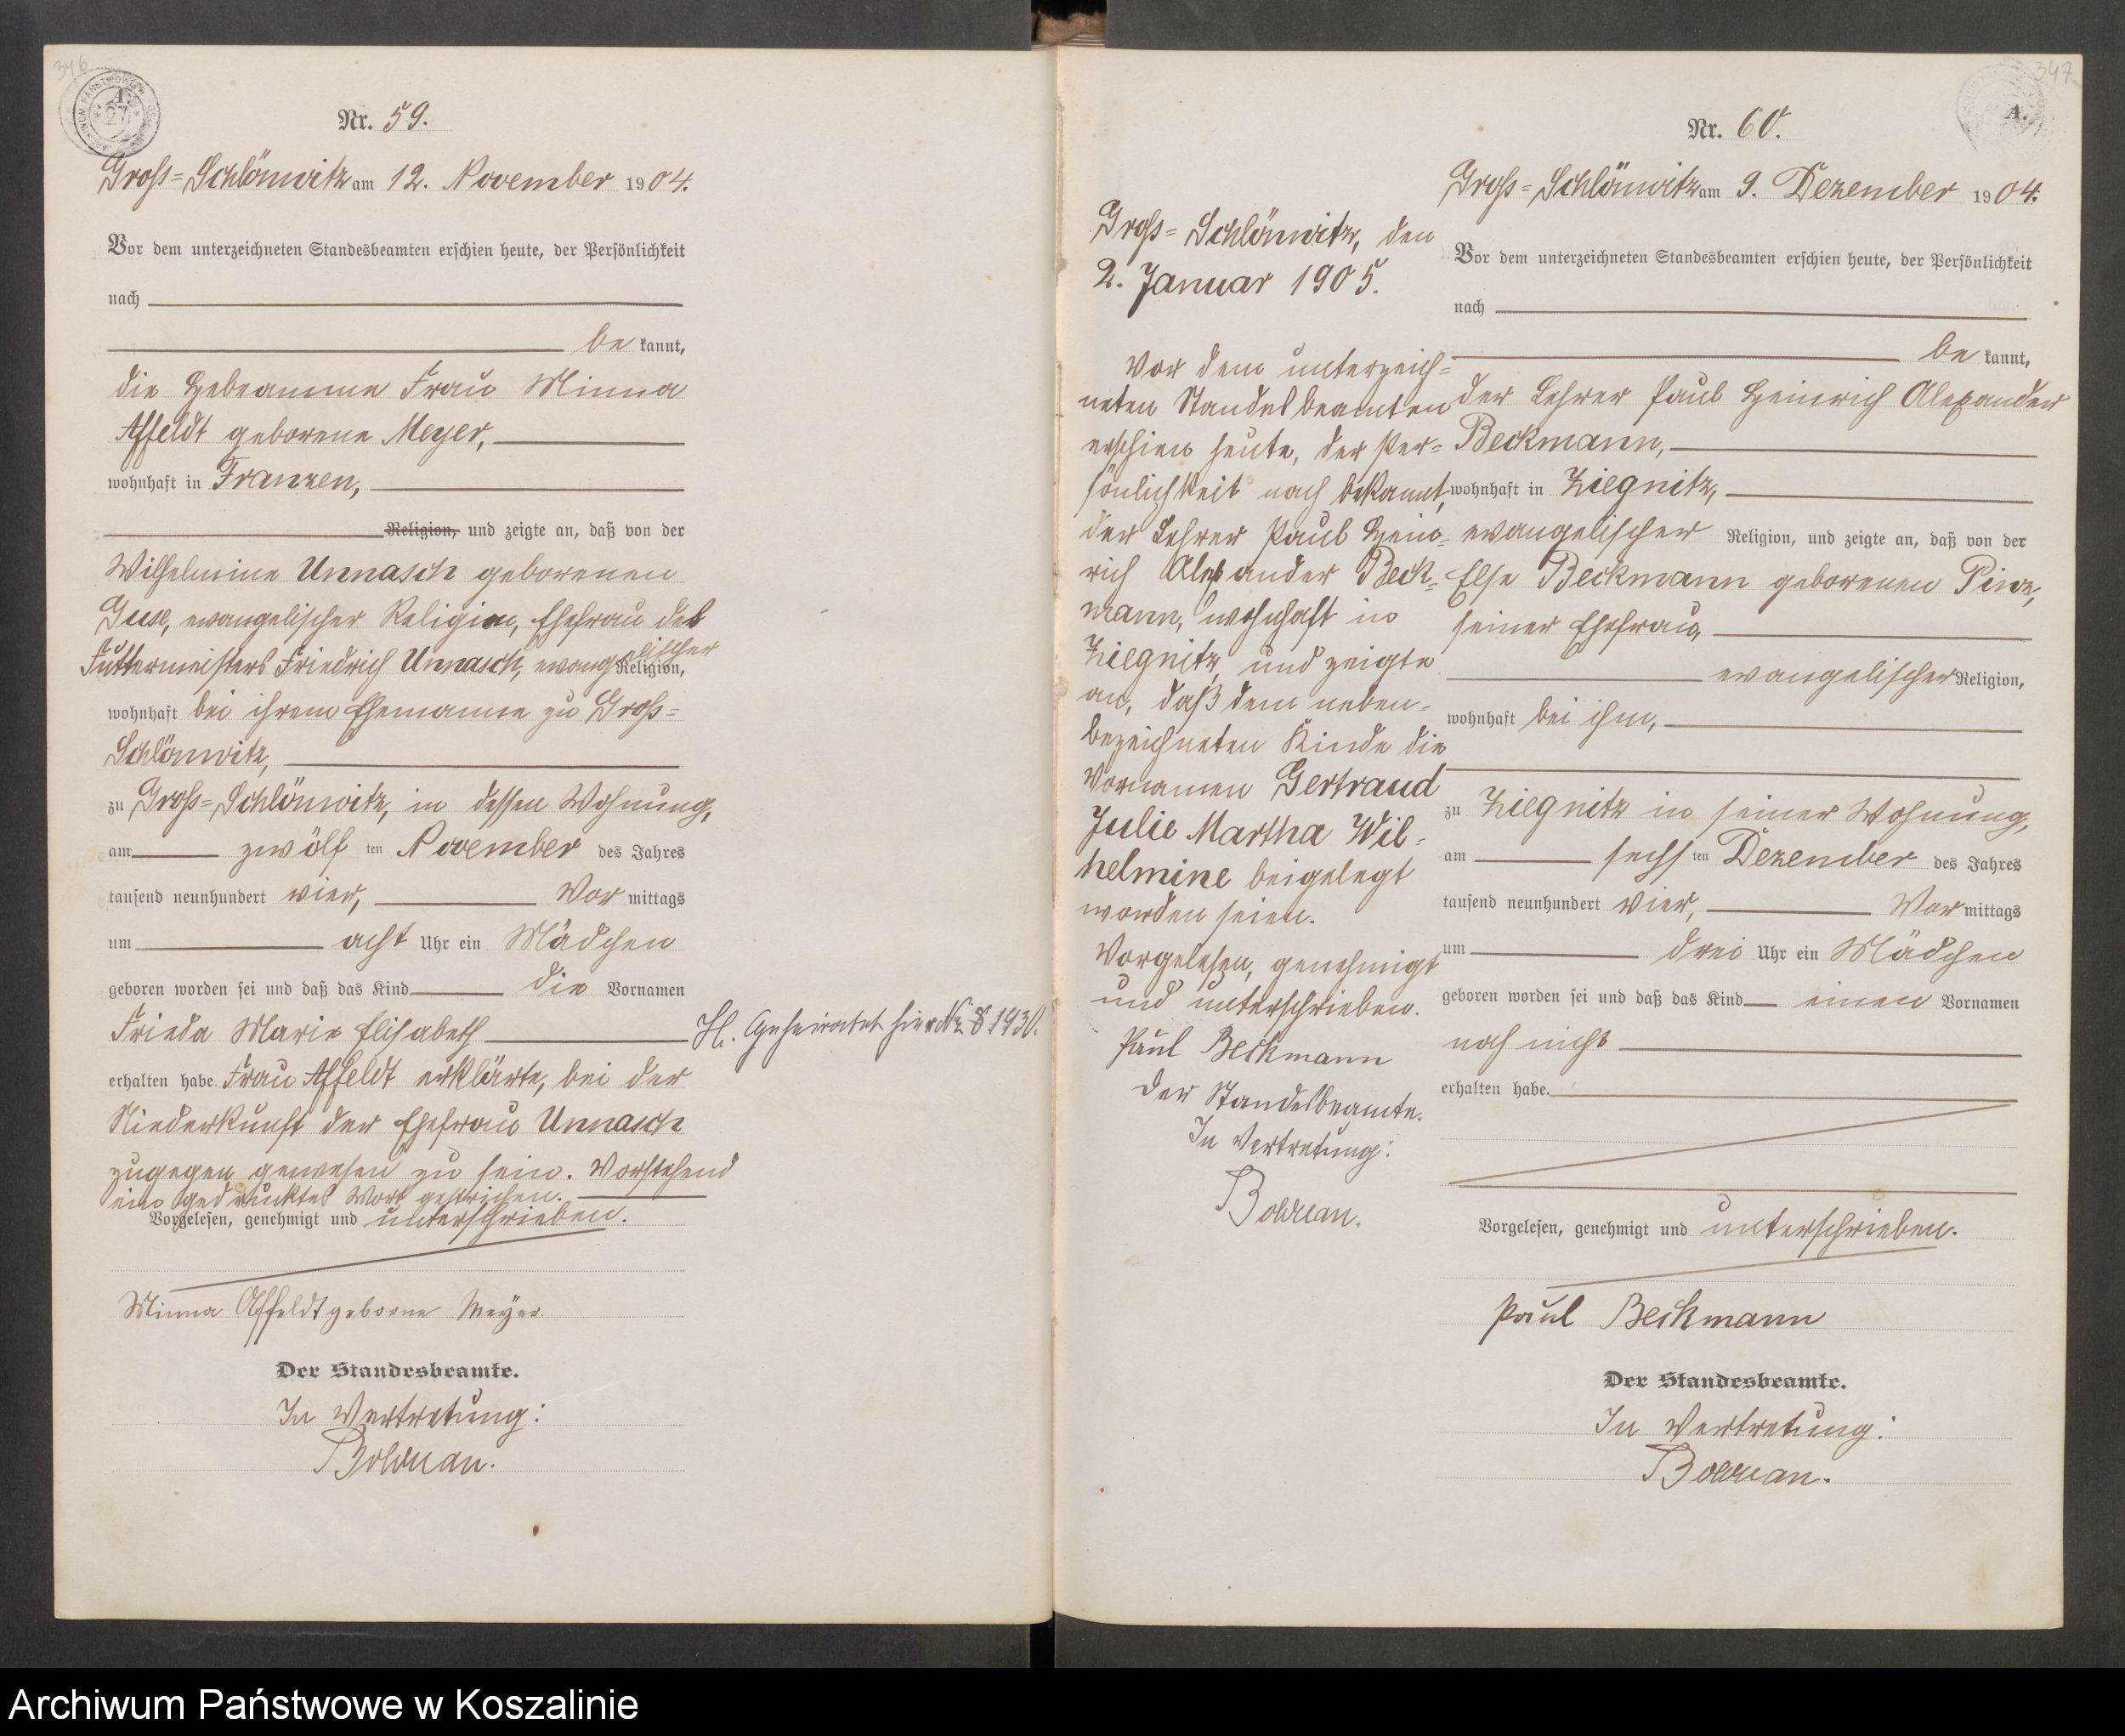 346
A.
Nr. 59.
Gross=Schlönwitz am 12. November 1904.
Vor dem unterzeichneten Standesbeamten erschien heute, der Persönlichkeit
nach
be kannt,
die Hebeamme Frau Minna
Affeldt geborene Meyer,
wohnhaft in Franzen,
Religion, und zeigte an, daß von der
Wilhelmine Unnasch geborenen
Guse, evangelischer Religion, Ehefrau des
Futtermeisters Friedrich Unnasch, evangelischer Religion,
wohnhaft bei ihrem Ehemanne zu Gross=
Schlönwitz,
zu Gross=Schlönwitz, in dessen Wohnung,
am zwölf ten November des Jahres
tausend neunhundert vier, Vor mittags
um acht Uhr ein Mädchen
geboren worden sei und daß das Kind die Vornamen
Frieda Marie Elisabeth
erhalten habe. Frau Affeldt erklärte, bei der
Niederkunft der Ehefrau Unnasch
zugegen gewesen zu sein. Vorstehend
ein gedrucktes Wort gestrichen.
Vorgelesen, genehmigt und unterschrieben.
Minna Affeldt geborne Meyer
Der Standesbeamte.
In Vertretung:
Bolduan.
H. Geheiratet hier Nr 8 1930.
347
A.
Nr. 60.
Gross=Schlönwitz am 9. Dezember 1904.
Vor dem unterzeichneten Standesbeamten erschien heute, der Persönlichkeit
nach
be kannt,
der Lehrer Paul Heinrich Alexander
Beckmann,
wohnhaft in Ziegnitz,
evangelischer Religion, und zeigte an, daß von der
Else Beckmann geborenen Pinz,
seiner Ehefrau,
evangelischer Religion,
wohnhaft bei ihm,
zu Ziegnitz in seiner Wohnung,
am sechs ten Dezember des Jahres
tausend neunhundert vier, Vor mittags
um drei Uhr ein Mädchen
geboren worden sei und daß das Kind einen Vornamen
noch nicht
erhalten habe.
Vorgelesen, genehmigt und unterschrieben.
Paul Beckmann
Der Standesbeamte.
In Vertretung:
Bolduan.
Gross=Schlönwitz, den
2. Januar 1905.
Vor dem unterzeich=
neten Standesbeamten
erschien heute, der Per=
sönlichkeit nach bekannt,
der Lehrer Paul Hein=
rich Alexander Beck=
mann, wohnhaft in
Ziegnitz, und zeigte
an, daß dem neben=
bezeichneten Kinde die
Vornamen Gertraud
Julie Martha Wil=
helmine beigelegt
worden seien.
Vorgelesen, genehmigt
und unterschrieben.
Paul Beckmann
Der Standesbeamte.
In Vertretung:
Bolduan.
Archiwum Państwowe w Koszalinie